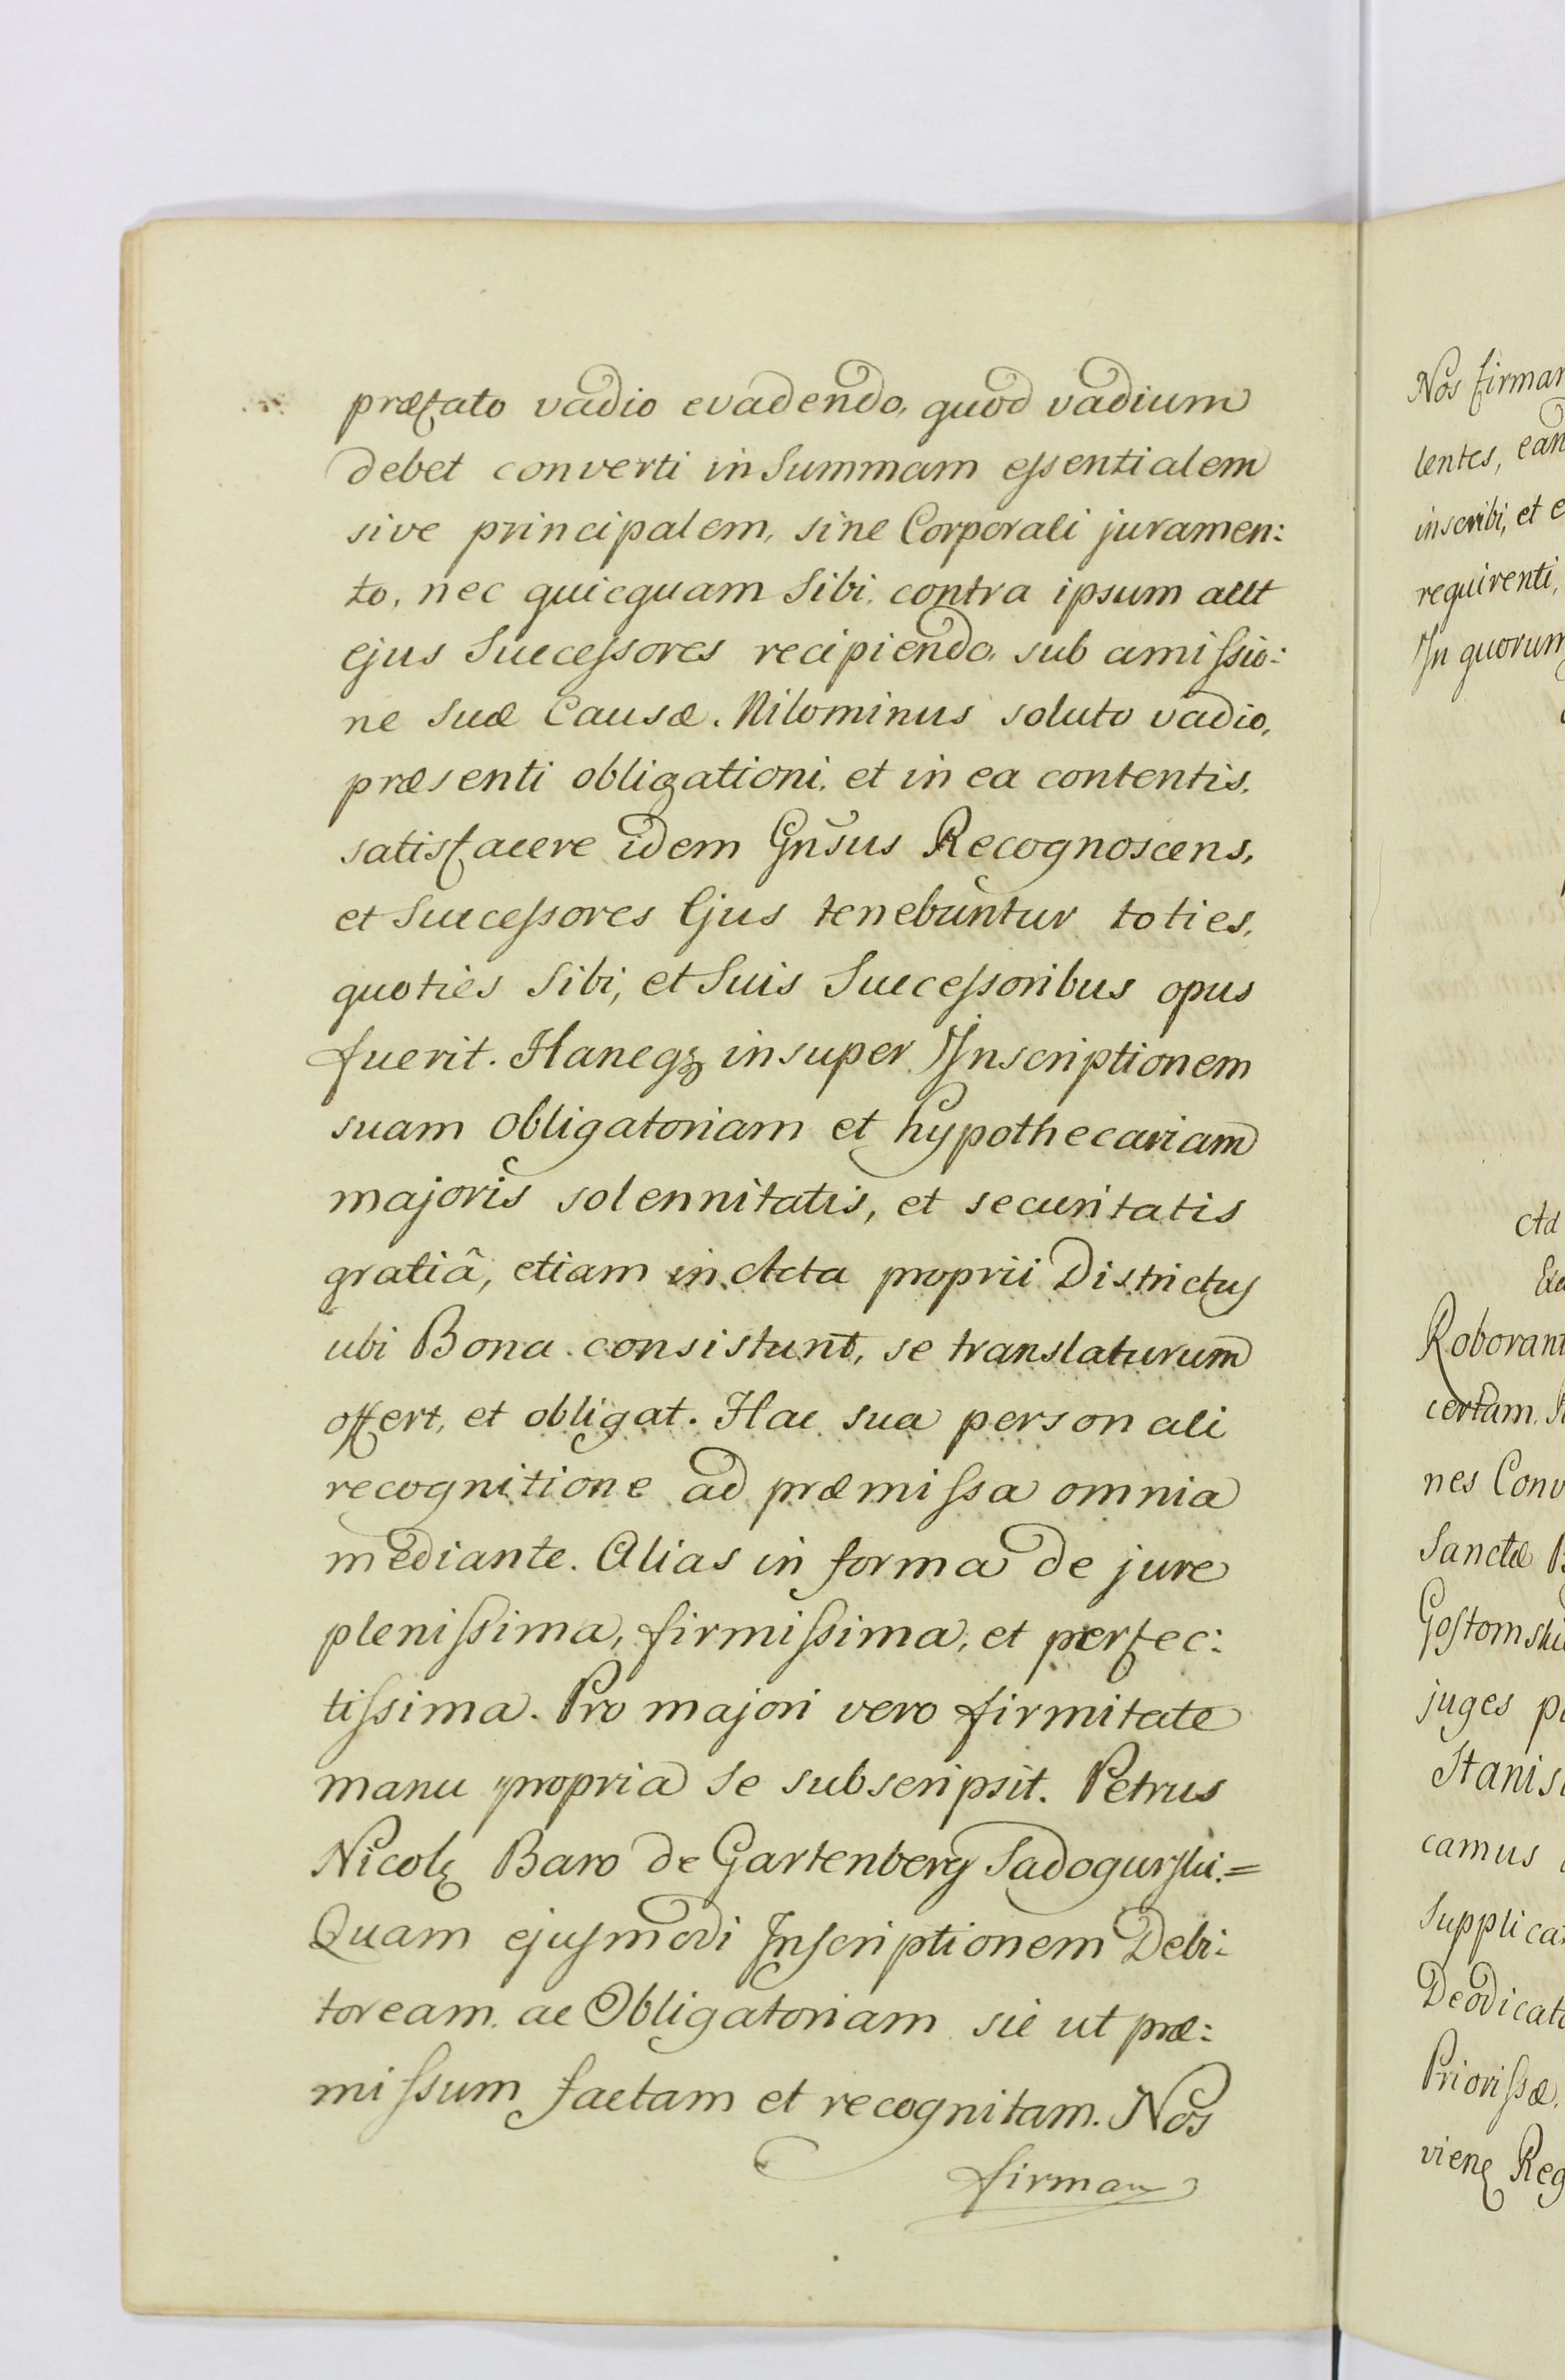 præfato vadio evadendo, quod vadium
debet converti in Summam essentialem
sive principalem, sine Corporali juramen:
to, nec quicquam Sibi, contra ipsum aut
ejus Successores recipiendo, sub amissio:
ne suæ Causæ. Nilominus soluto vadio,
præsenti obligationi, et in ea contentis,
satisfacere idem Gnsus Recognoscens,
et Successores Ejus tenebuntur toties,
quoties Sibi, et Suis Successoribus opus
fuerit. Hancqz insuper Inscriptionem
suam obligatoriam et hypothecariam
majoris solennitatis, et securitatis
gratiâ, etiam in Acta proprii Districtus
ubi Bona consistunt, se translaturum
offert, et obligat. Hac sua personali
recognitione ad præmissa omnia
mediante. Alias in forma de jure
plenissima, firmissima, et perfec:
tissima. Pro majori vero firmitate
manu propria se subscripsit. Petrus
Nicolę Baro de Gartenberg Sadogurski.=
Quam ejusmodi Inscriptionem Debi:
toream ac Obligatoriam sic ut præ:
missum factam et recognitam. Nos
firman
Nos firman
lentes, ean
inscribi, et e
requirenti,
In quorum
Ad
Roborant
certam
nes Conv
Sanctæ
Gostomski
juges
Stanis
camus
Supplicat
Deodicat
Priorissæ,
vienę Reg